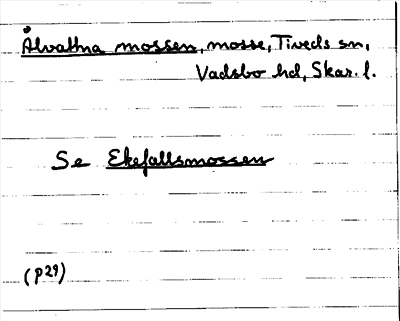 Ålvattna mossen, mosse, Tiveds sn,
Vadsbo hd, Skar. l.
Se Ekefallsmossen
(P29)